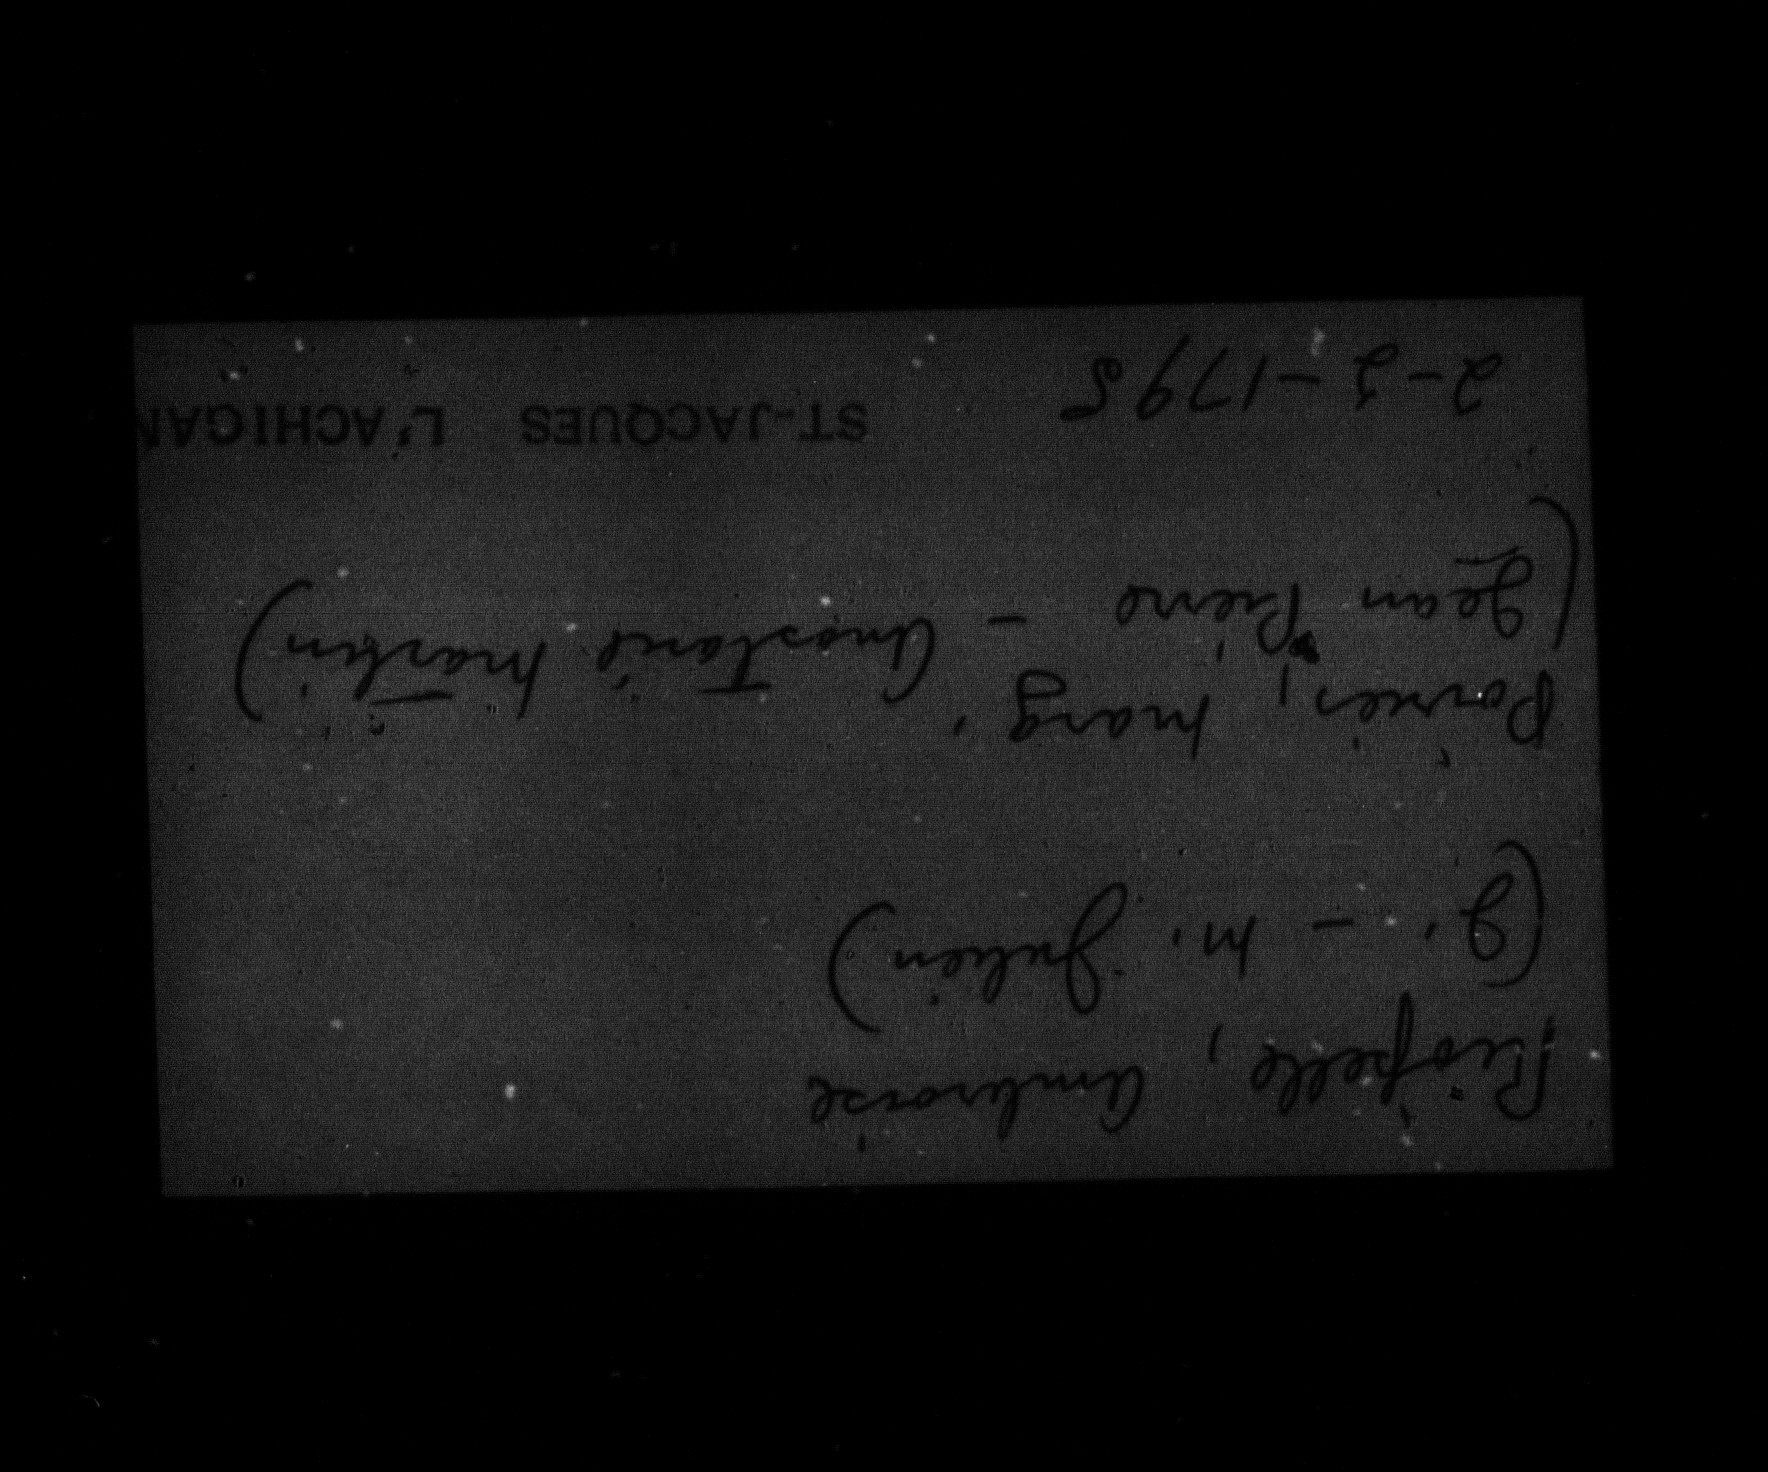 Riopelle, Ambroise
(J. - M. Julien)
Poirier, Marg.
(Jean Pierre - Anastasie Martin)
2-3-1795 ST-JACQUES L'ACHIGAN